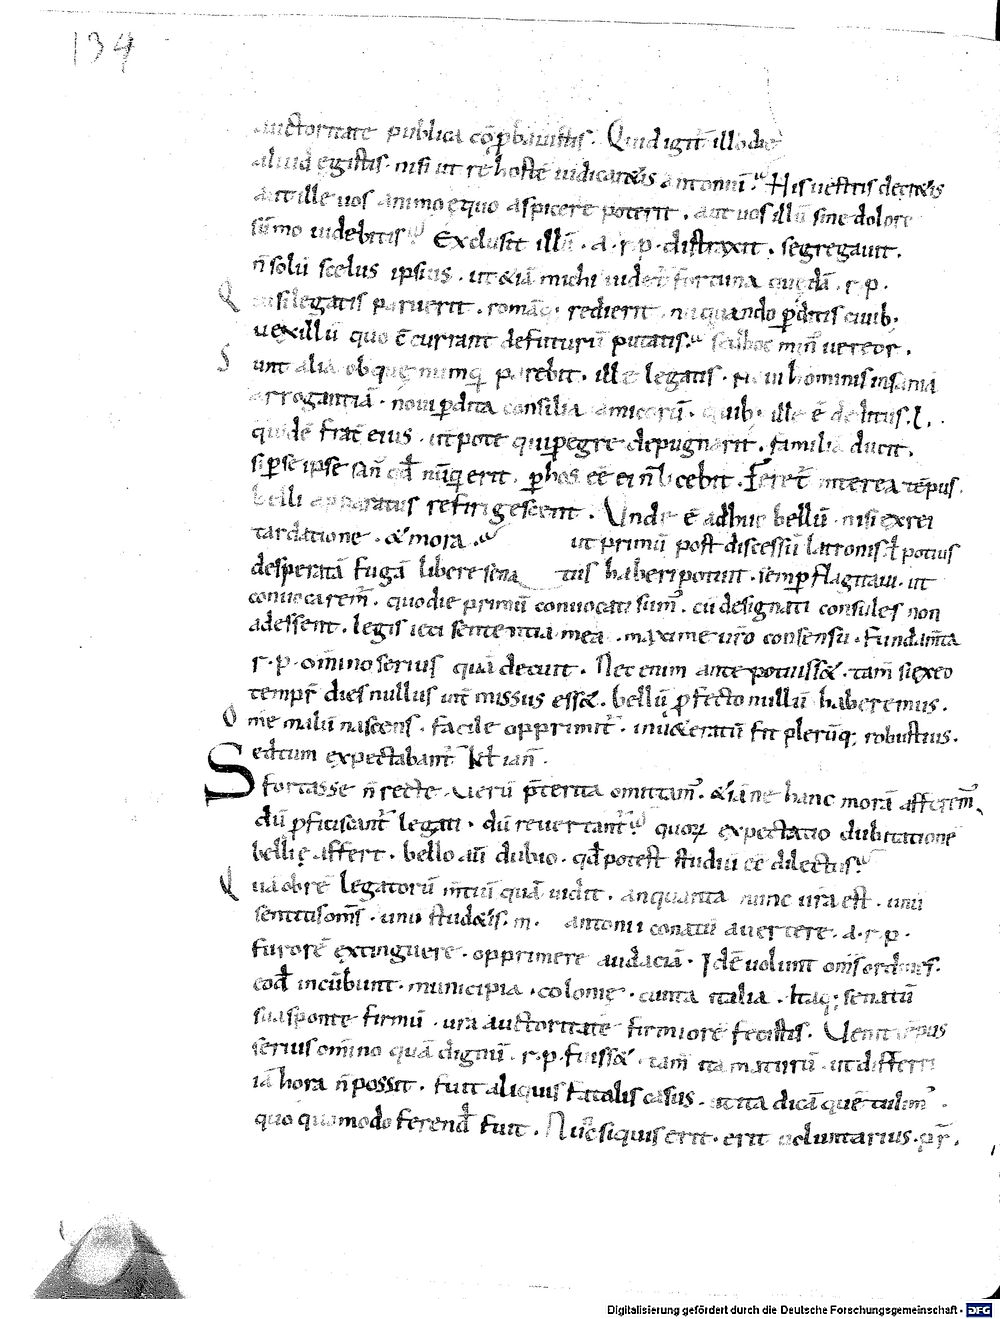 134
auctoritate publica cōp̱bauistis. Quid igit̄ illo die
aliud egistis. nisi ut rē hostē iudicar&is antoniū. His uestris decr&is
aut ille uos animo ęquo aspicere poterit. aut uos illū sine dolore
sūmo uidebitis. Exclusit illū. a. r. p. distraxit. segregauit.
n̄ solū scelus ipsius. ut &iā michi uidet̄ fortuna quędā. r. p.
Q ui si legatis paruerit. romāq; redierit. nūquando p̱ditis ciuib.
uexillū quo c̄currant defuturū putatis. sed hoc min' uereor.
S unt alia ob quę numq̄ parebit. ille legatis. Noui hominis insaniā
arrogantiā. noui p̱dita consilia amicorū. quib. ille ē deditus. l.
quidē frat̄ eius. ut pote qui p̱egre depugnarit. familiā ducit.
si p̱ se ipse san' qd̄ nūq̄ erit. p̱ hos eē ei n̄ licebit. Feret̄ interea tēpus.
belli apparatus refrigescent. Unde ē adhuc bellū. nisi ex rei
tardatione. & mora. ut primū post discessū latronis. ł potius
desperatā fugā libere sena tus haberi potuit. semp̱ flagitaui. ut
conuocarem̄. quo die primū conuocati sum'. cū designati consules non
adessent. legis ieci sententia mea. maxime ur̄o consensu. fundam̄ta
r. p. omīno serius quā decuit. Nec enim ante potuiss&. tam̄ si ex eo
tempr̄ dies nullus int̄missus ess&. bellū p̱fecto nullū haberemus.
O me malū nascens. facile opprimit̄. inu&eratū fit plerūq; robustius.
Sed tum expectabant̄ kl̄ ian̄.
fortasse n̄ recte. Uerū p̄terita omittam'. &iā ne hanc morā afferem'.
dū p̱ficiscant̄ legati. dū reuertant̄. quoꝝ expectatio dubitationē
belli ę affert. bello au' dubio. qd̄ potest studiū eē dilectus.
Q uā obrē legatorū m̄tiū quā uidit. an quanta nunc ur̄a est. unū
sentitis om̄s. unū stud&is. m. antonii conatū auertere. a. r. p.
furorē extinguere. opprimere audaciā. Idē uolunt om̄s ordines.
eod̄ incūbunt. municipia. colonię. cunta italia. Itaq; senatū
sua sponte firmū. ur̄a auctoritatē firmiorē fecistis. Uenit tēpus
serius omīno quā dignū. r. p. fuiss&. tam̄ ita maturū. ut differri
iā hora n̄ possit. fuit aliquis fatalis casus. ut ita dicā quē tulim'.
quoquomodo ferend̄ fuit. Nūc siquis erit. erit uoluntarius. pr̄.
Digitalisierung gefördert durch die Deutsche Forschungsgemeinschaft - DFG